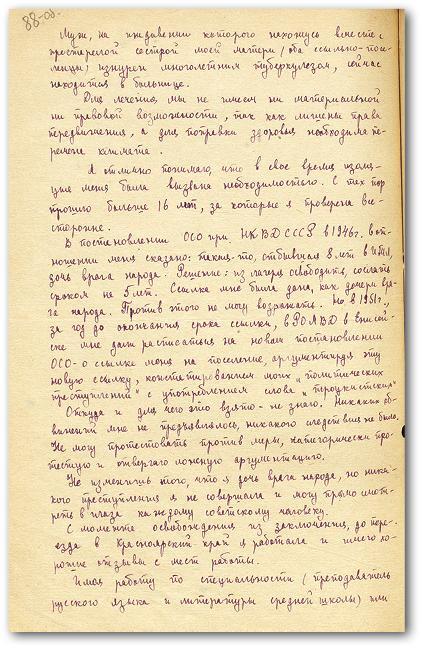 88-об.
Муж, на иждивении которого нахожусь вместе с
престарелой сестрой моей матери (оба ссыльно-посе-
ленцы) изнурен многолетним туберкулезом, сейчас
находится в больнице.
Для лечения мы не имеем ни материальной
ни правовой возможности, так как лишены права
передвижения, а для поправки здоровья необходима пе-
ремена климата.
Я отлично понимаю, что в свое время изоля-
ция меня была вызвана необходимостью. С тех пор
прошло больше 16 лет, за которые я проверена все-
сторонне.
В постановлении ОСО при НКВД СССР в 1946 г. в от-
ношении меня сказано: такая-то, отбывшая 8 лет в ИТЛ,
дочь врага народа. Решение: из лагеря освободить, сослать
сроком на 5 лет. Ссылка мне была дана, как дочери вра-
га народа. Против этого не могу возражать. Но в 1951 г.,
за год до окончания срока ссылки, в РОМВД в Енисей-
ске мне дали расписаться на новом постановлении
ОСО - о ссылке меня на поселение, аргументируя эту
новую ссылку, констатированием моих "политических
преступлений" с употреблением слова "троцкистския"
Откуда и для чего это взято - не знаю. Никаких об-
винений мне не предъявлялось, никакого следствия не было.
Не могу протестовать против меры, категорически про-
тестую и отвергаю ложную аргументацию.
Не изменишь того, что я дочь врага народа, но ника-
кого преступления я не совершала и могу прямо смот-
реть в глаза каждому советскому человеку.
С момента освобождения из заключения, до пере-
езда в Красноярский край я работала и имею хо-
рошие отзывы с мест работы.
Имея работу по специальности (преподаватель
русского языка и литературы средней школы) или